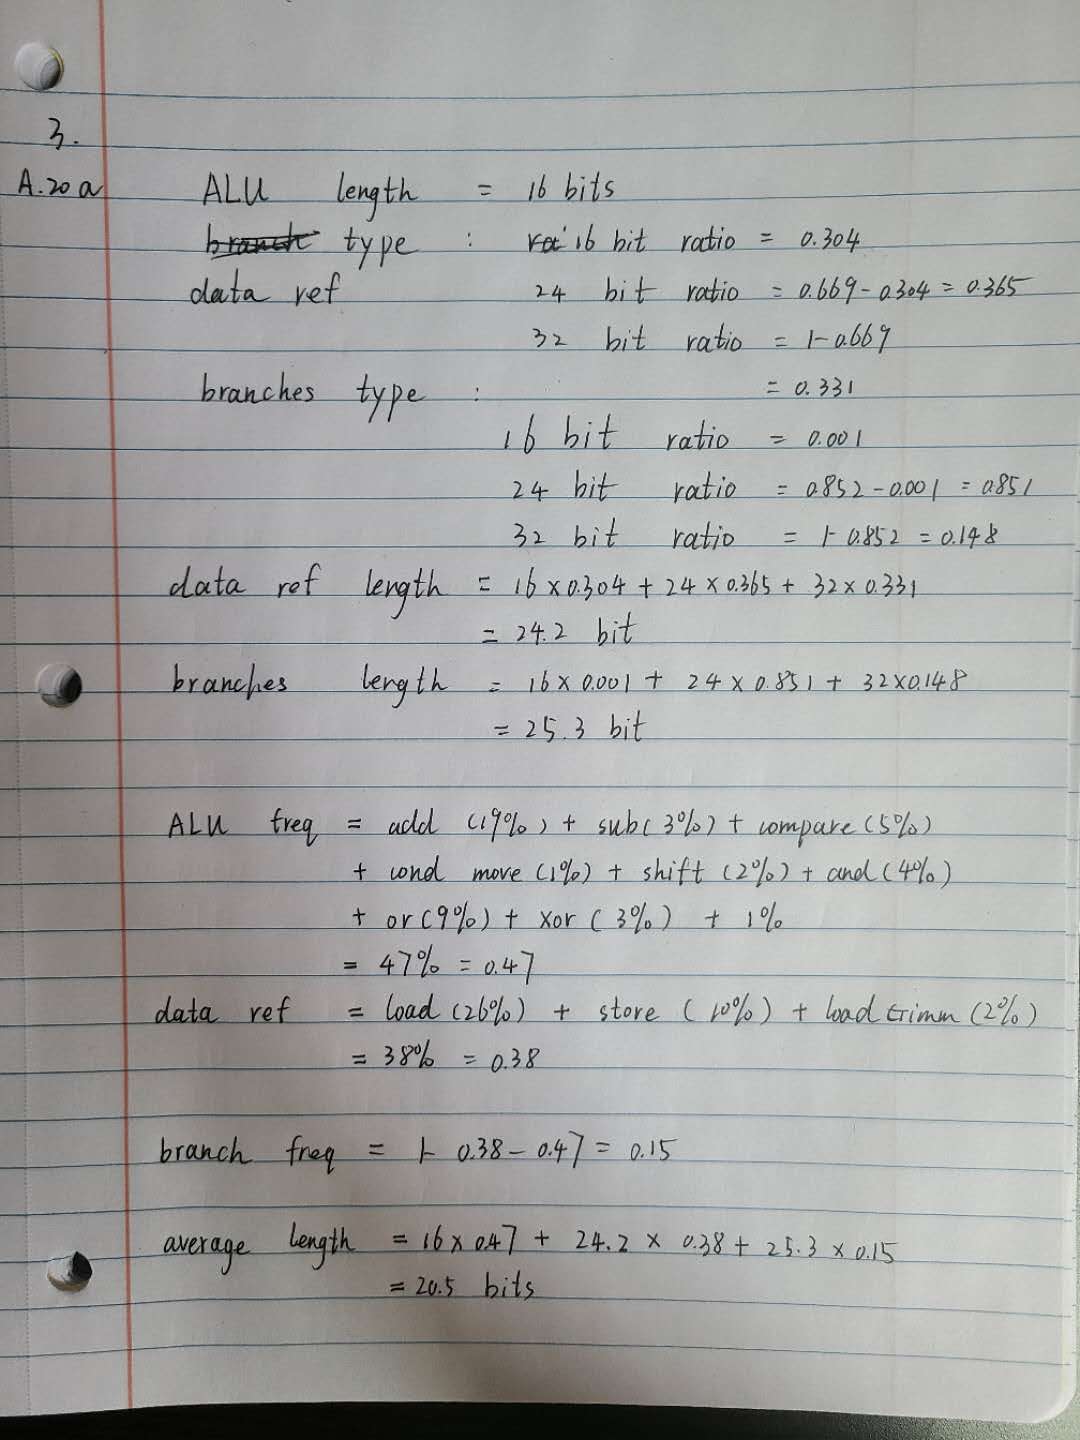 3.
A.20 a ALU length = 16 bits
type : 16 bit ratio = 0.304
data ref 24 bit ratio = 0.669 - 0.304 = 0.365
32 bit ratio = 1 - 0.669
branches type : = 0.331
16 bit ratio = 0.001
24 bit ratio = 0.852 - 0.001 = 0.851
32 bit ratio = 1 - 0.852 = 0.148
data ref length = 16 × 0.304 + 24 × 0.365 + 32 × 0.331
= 24.2 bit
branches length = 16 × 0.001 + 24 × 0.851 + 32 × 0.148
= 25.3 bit
ALU freq = add (19%) + sub (3%) + compare (5%)
+ cond move (1%) + shift (2%) + and (4%)
+ or (9%) + xor (3%) + 1%
= 47% = 0.47
data ref = load (26%) + store (10%) + load imm (2%)
= 38% = 0.38
branch freq = 1 - 0.38 - 0.47 = 0.15
average length = 16 × 0.47 + 24.2 × 0.38 + 25.3 × 0.15
= 20.5 bits